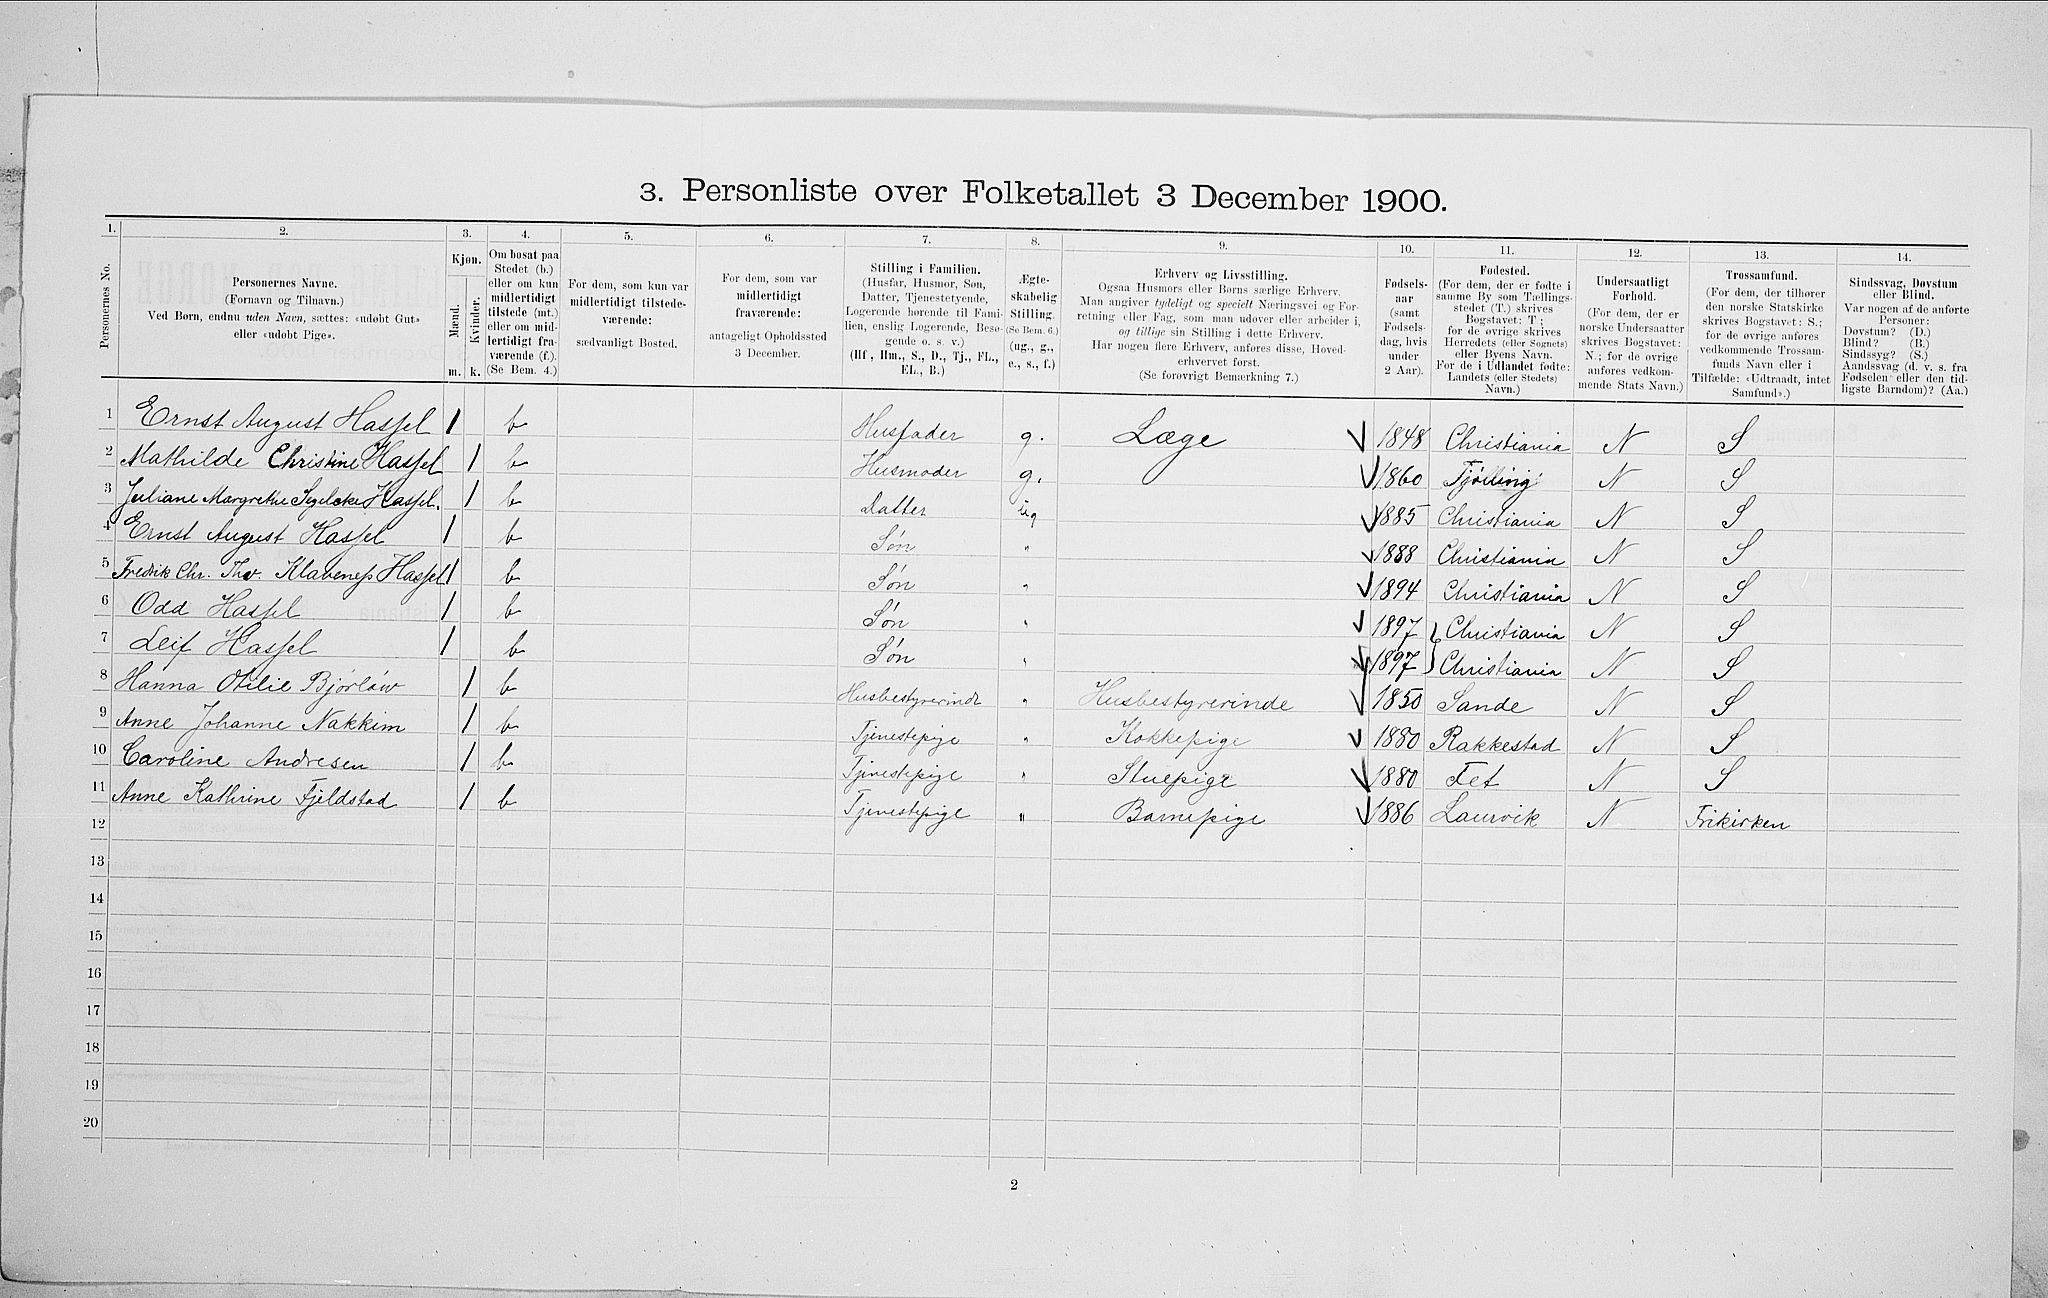 3. Personliste over Folketallet 3 December 1900.
1. 2. 3. 4. 5. 6. 7. 8. 9. 10. 11. 12. 13. 14.
Personernes No.
Personernes Navne.
(Fornavn og Tilnavn.)
Ved Børn, endnu uden Navn, sættes: «udøbt Gut»
eller «udøbt Pige».
Kjøn.
Mænd.
Kvinder.
m. k.
Om bosat paa
Stedet (b.)
eller om kun
midlertidigt
tilstede (mt.)
eller om mid-
lertidigt fra-
værende (f.).
(Se Bem. 4.)
For dem, som kun var
midlertidigt tilstede-
værende:
sædvanligt Bosted.
For dem, som var
midlertidigt
fraværende:
antageligt Opholdssted
3 December.
Stilling i Familien.
(Husfar, Husmor, Søn,
Datter, Tjenestetyende,
Logerende hørende til Fami-
lien, enslig Logerende, Besø-
gende o. s. v.)
(Hf., Hm., S., D., Tj., FL.,
EL., B.)
Ægte-
skabelig
Stilling.
(Se Bem. 6.)
(ug., g.,
e., s., f.)
Erhverv og Livsstilling.
Ogsaa Husmors eller Børns særlige Erhverv.
Man angiver tydeligt og specielt Næringsvei og For-
retning eller Fag, som man udøver eller arbeider i,
og tillige sin Stilling i dette Erhverv.
Har nogen flere Erhverv, anføres disse, Hoved-
erhvervet først.
(Se forøvrigt Bemærkning 7.)
Fødsels-
aar
(samt
Fødsels-
dag, hvis
under
2 Aar).
Fødested.
(For dem, der er fødte i
samme By som Tællings-
stedet (T.) skrives
Bogstavet: T;
for de øvrige skrives
Herredets (eller Sognets)
eller Byens Navn.
For de i Udlandet fødte:
Landets (eller Stedets)
Navn.)
Undersaatligt
Forhold.
(For dem, der er
norske Undersaatter
skrives Bogstavet:
N.; for de øvrige
anføres vedkom-
mende Stats Navn.)
Trossamfund.
(For dem, der tilhører
den norske Statskirke
skrives Bogstavet: S.;
for de øvrige anføres
vedkommende Trossam-
funds Navn eller i
Tilfælde: «Udtraadt, intet
Samfund».)
Sindssvag, Døvstum
eller Blind.
Var nogen af de anførte
Personer:
Døvstum? (D.)
Blind? (B.)
Sindssyg? (S.)
Aandssvag (d. v. s. fra
Fødselen eller den tid-
ligste Barndom)? (Aa.)
1 Ernst August Hassel 1 b Husfader g. Læge 1848 Christiania N S
2 Mathilde Christine Hassel 1 b Husmoder g. 1860 Tjølling N S
3 Juliane Margrethe Segelcke Hassel. 1 b Datter ug 1885 Christiania N S
4 Ernst August Hassel 1 b Søn " 1888 Christiania N S
5 Fredrik Chr. Thv. Klaveness Hassel 1 b Søn " 1894 Christiania N S
6 Odd Hassel 1 b Søn " 1897 Christiania N S
7 Leif Hassel 1 b Søn " 1897 Christiania N S
8 Hanna Otilie Bjørløw 1 b Husbestyrerinde " Husbestyrerinde 1850 Sande N S
9 Anne Johanne Nakkim 1 b Tjenestepige " Kokkepige 1880 Rakkestad N S
10 Caroline Andresen 1 b Tjenestepige " Stuepige 1880 Fet N S
11 Anne Kathrine Fjeldstad 1 b Tjenestepige " Barnepige 1886 Laurvik N Frikirken
12
13
14
15
16
17
18
19
20
2